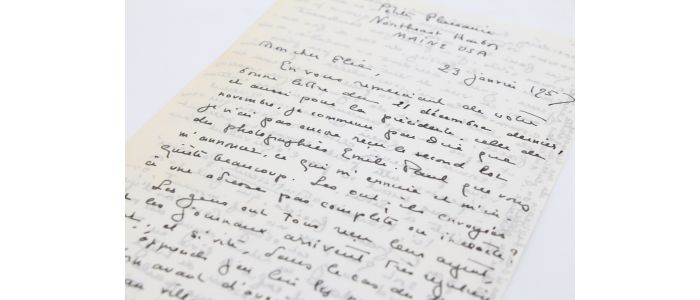 Petite Plaisance
Northeast Harbor
MAINE USA
23 janvier 1957
Mon cher Élie,
En vous remerciant de votre
bonne lettre du 21 décembre dernier,
et aussi pour la précédente, celle de
novembre, je commence par dire que
je n'ai pas encore reçu le second lot
de photographies Emile-Paul que vous
m'annoncez, ce qui m'ennuie et m'in
quiète beaucoup. Les ont-ils envoyées
à une adresse pas complète ou inexacte?
Les gens ont tous reçu leur argent,
les journaux arrivent très régulière
et si vite, dans le cas de
apprends j'en
avant d'